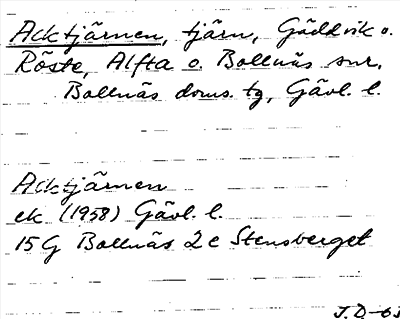 Acktjärnen, tjärn, Gäddvik o.
Röste, Alfta o. Bollnäs snr,
Bollnäs doms. tg, Gävl. l.
Acktjärnen
ek (1958) Gävl. l.
15G Bollnäs 2c Stensberget
J.D-63